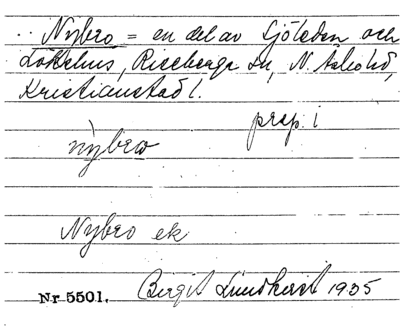 .. Nybro = en del av Sjöleden och
Lottehus, Riseberga sn, N. Åsbo hd,
Kristianstad l.
prep. i
nỳbrω
Nybro ek
Nr 5501. Birgit Lundkvist 1935